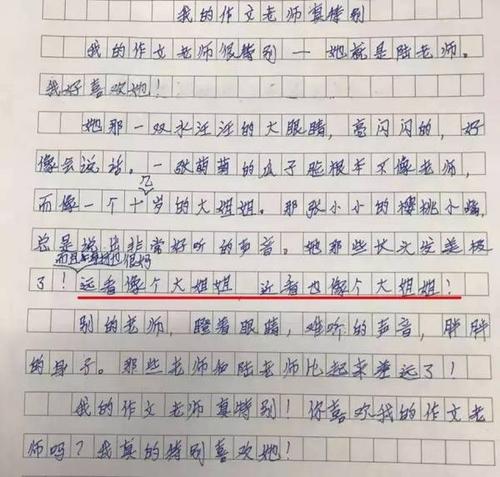 我的作文老师真特别
我的作文老师很特别一她就是陆老师。
我好喜欢她！
她那一双水汪汪的大眼睛，亮闪闪的，好
像会说话。一张萌萌的瓜子脸根本不像老师，
而像一个十几岁的大姐姐。那张小小的樱桃小嘴，
总是说出非常好听的声音。她那些长头发美极
了！而且身材也很好远看像个大姐姐 近看也像个大姐姐！
别的老师，瞪着眼睛，难听的声音，胖胖
的身子。那些老师和陆老师比起来差远了！
我的作文老师真特别！你喜欢我的作文老
师吗？我真的特别喜欢她！